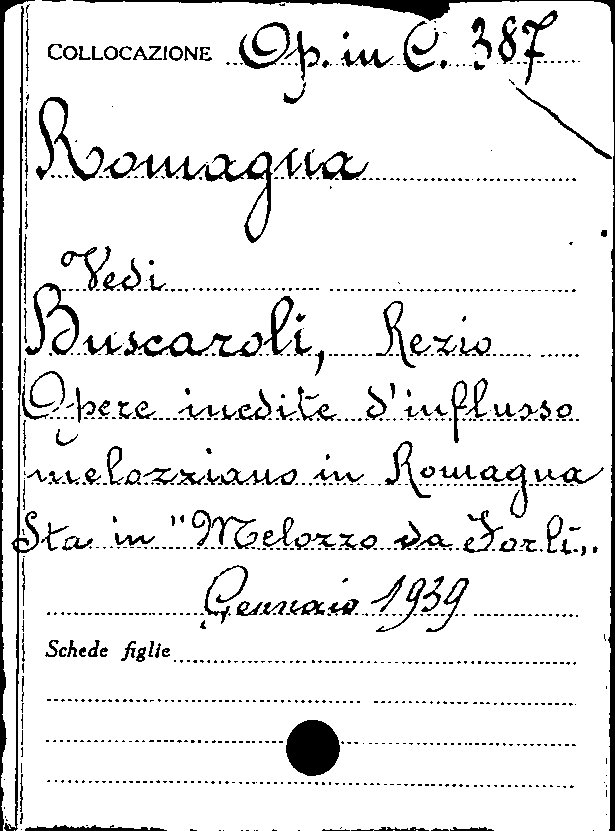 COLLOCAZIONE Op. in C. 387
Romagna
Vedi
Buscaroli, Rezio
Opere inedite d'influsso
melozziano in Romagna
Sta in "Melozzo da Forlì„.
Gennaio 1939
Schede figlie